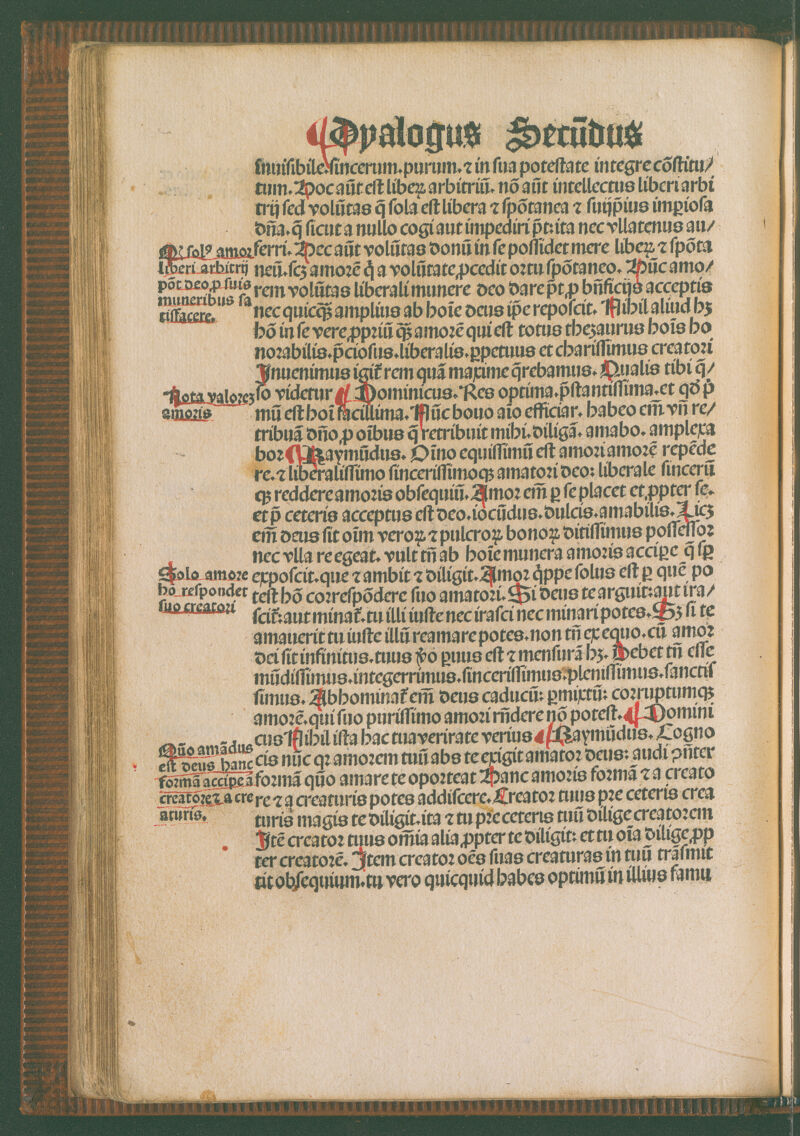 ¶ Dyalogus Secūdus
inuisibile.sincerum.purum.⁊ in sua potestate integre cōstitu/
tum. Hoc aūt est libeꝝ arbitriū. nō aūt intellectus liberi arbi
trij sed volūtas q̄ sola est libera ⁊ spōtanea ⁊ suijp̄ius imꝑiosa
dn̄a.q̄ sicut a nullo cogi aut impediri p̄t:ita nec vllatenus au/
ferri. Hec aūt volūtas donū in se possidet mere libeꝝ ⁊ spōta
neū.scꝫ amorē q̇ a volūtate ꝓcedit ortu spōtaneo. Hūc amo/
rem volūtas liberali munere deo dare p̄t ꝓ bn̄ficijs acceptis
nec quicq̄ꝫ amplius ab hoīe deus ip̄e reposcit. Nihil aliud hꝫ
hō in se vere ꝓpriū q̄ꝫ amorē qui est totus thezaurus hoīs ho
norabilis.p̄ciosus.liberalis.ꝑpetuus et charissimus creatori
Inuenimus igit̄ rem quā maxime q̄rebamus. Qualis tibi q̄/
so videtur ¶ Dominicus. Res optima.p̄stantissima.et qd̄ p̄
mū est hoī facillima. Nūc bouo aīo efficiar. habeo em̄ vn̄ re/
tribuā dn̄o ꝓ oībus q̄ retribuit mihi.diligā. amabo. amplexa
bor ¶ Raymūdus. Oīno equissimū est amori amorē repēde
re.⁊ liberalissimo sincerissimoqꝫ amatori deo: liberale sincerū
qꝫ reddere amoris obsequiū. Amor em̄ ꝑ se placet et ꝓpter se.
et p̄ ceteris acceptus est deo.iocūdus.dulcis.amabilis. Licꝫ
em̄ deus sit oīm veroꝝ ⁊ pulcroꝝ bonoꝝ ditissimus possessor
nec vlla re egeat. vult tn̄ ab hoīe munera amoris acciꝑe q̄ sꝑ
exposcit.que ⁊ ambit ⁊ diligit. Amor q̇ppe solus est ꝑ quē po
test hō correspōdere suo amatori. Si deus te arguit:aut ira/
scit̄:aut minat̄.tu illi iuste nec irasci nec minari potes. Sꝫ si te
amauerit tu iuste illū reamare potes.non tn̄ ex equo.cū amor
dei sit infinitus.tuus v̄o ꝑuus est ⁊ mensurā hꝫ. Debet tn̄ esse
mūdissimus.integerrimus.sincerissimus.plenissimus.sanctis
simus. Abhominat̄ em̄ deus caducū: ꝑmixtū: corruptumqꝫ
amorē.qui suo purissimo amori rn̄dere nō potest. ¶ Domini
cus Nihil ista hac tua verirate verius ¶ Raymūdus. Cogno
cis nūc qꝛ amorem tuū abs te exigit amator deus: audi ꝯn̄ter
formā quo amare te oporteat Hanc amoris formā ⁊ a creato
re ⁊ a creaturis potes addiscere. Creator tuus pre ceteris crea
turis magis te diligit.ita ⁊ tu pre ceteris tuū dilige creatorem
Itē creator tuus om̄ia alia ꝓpter te diligit: et tu oīa dilige ꝓp
ter creatorē. Item creator oēs suas creaturas in tuū trāsmit
tit obsequium.tu vero quicquid habes optimū in illius famu
Qꝛ solꝰ amor
liberi arbitrij
pōt deo ꝓ suis
muneribus sa
tissacere.
Nota valoreꝫ
amoris
Solo amore
hō respondet
suo creatori
Quō amādus
est deus hanc
formā accipe a
creatore ⁊ a cre
aturis.